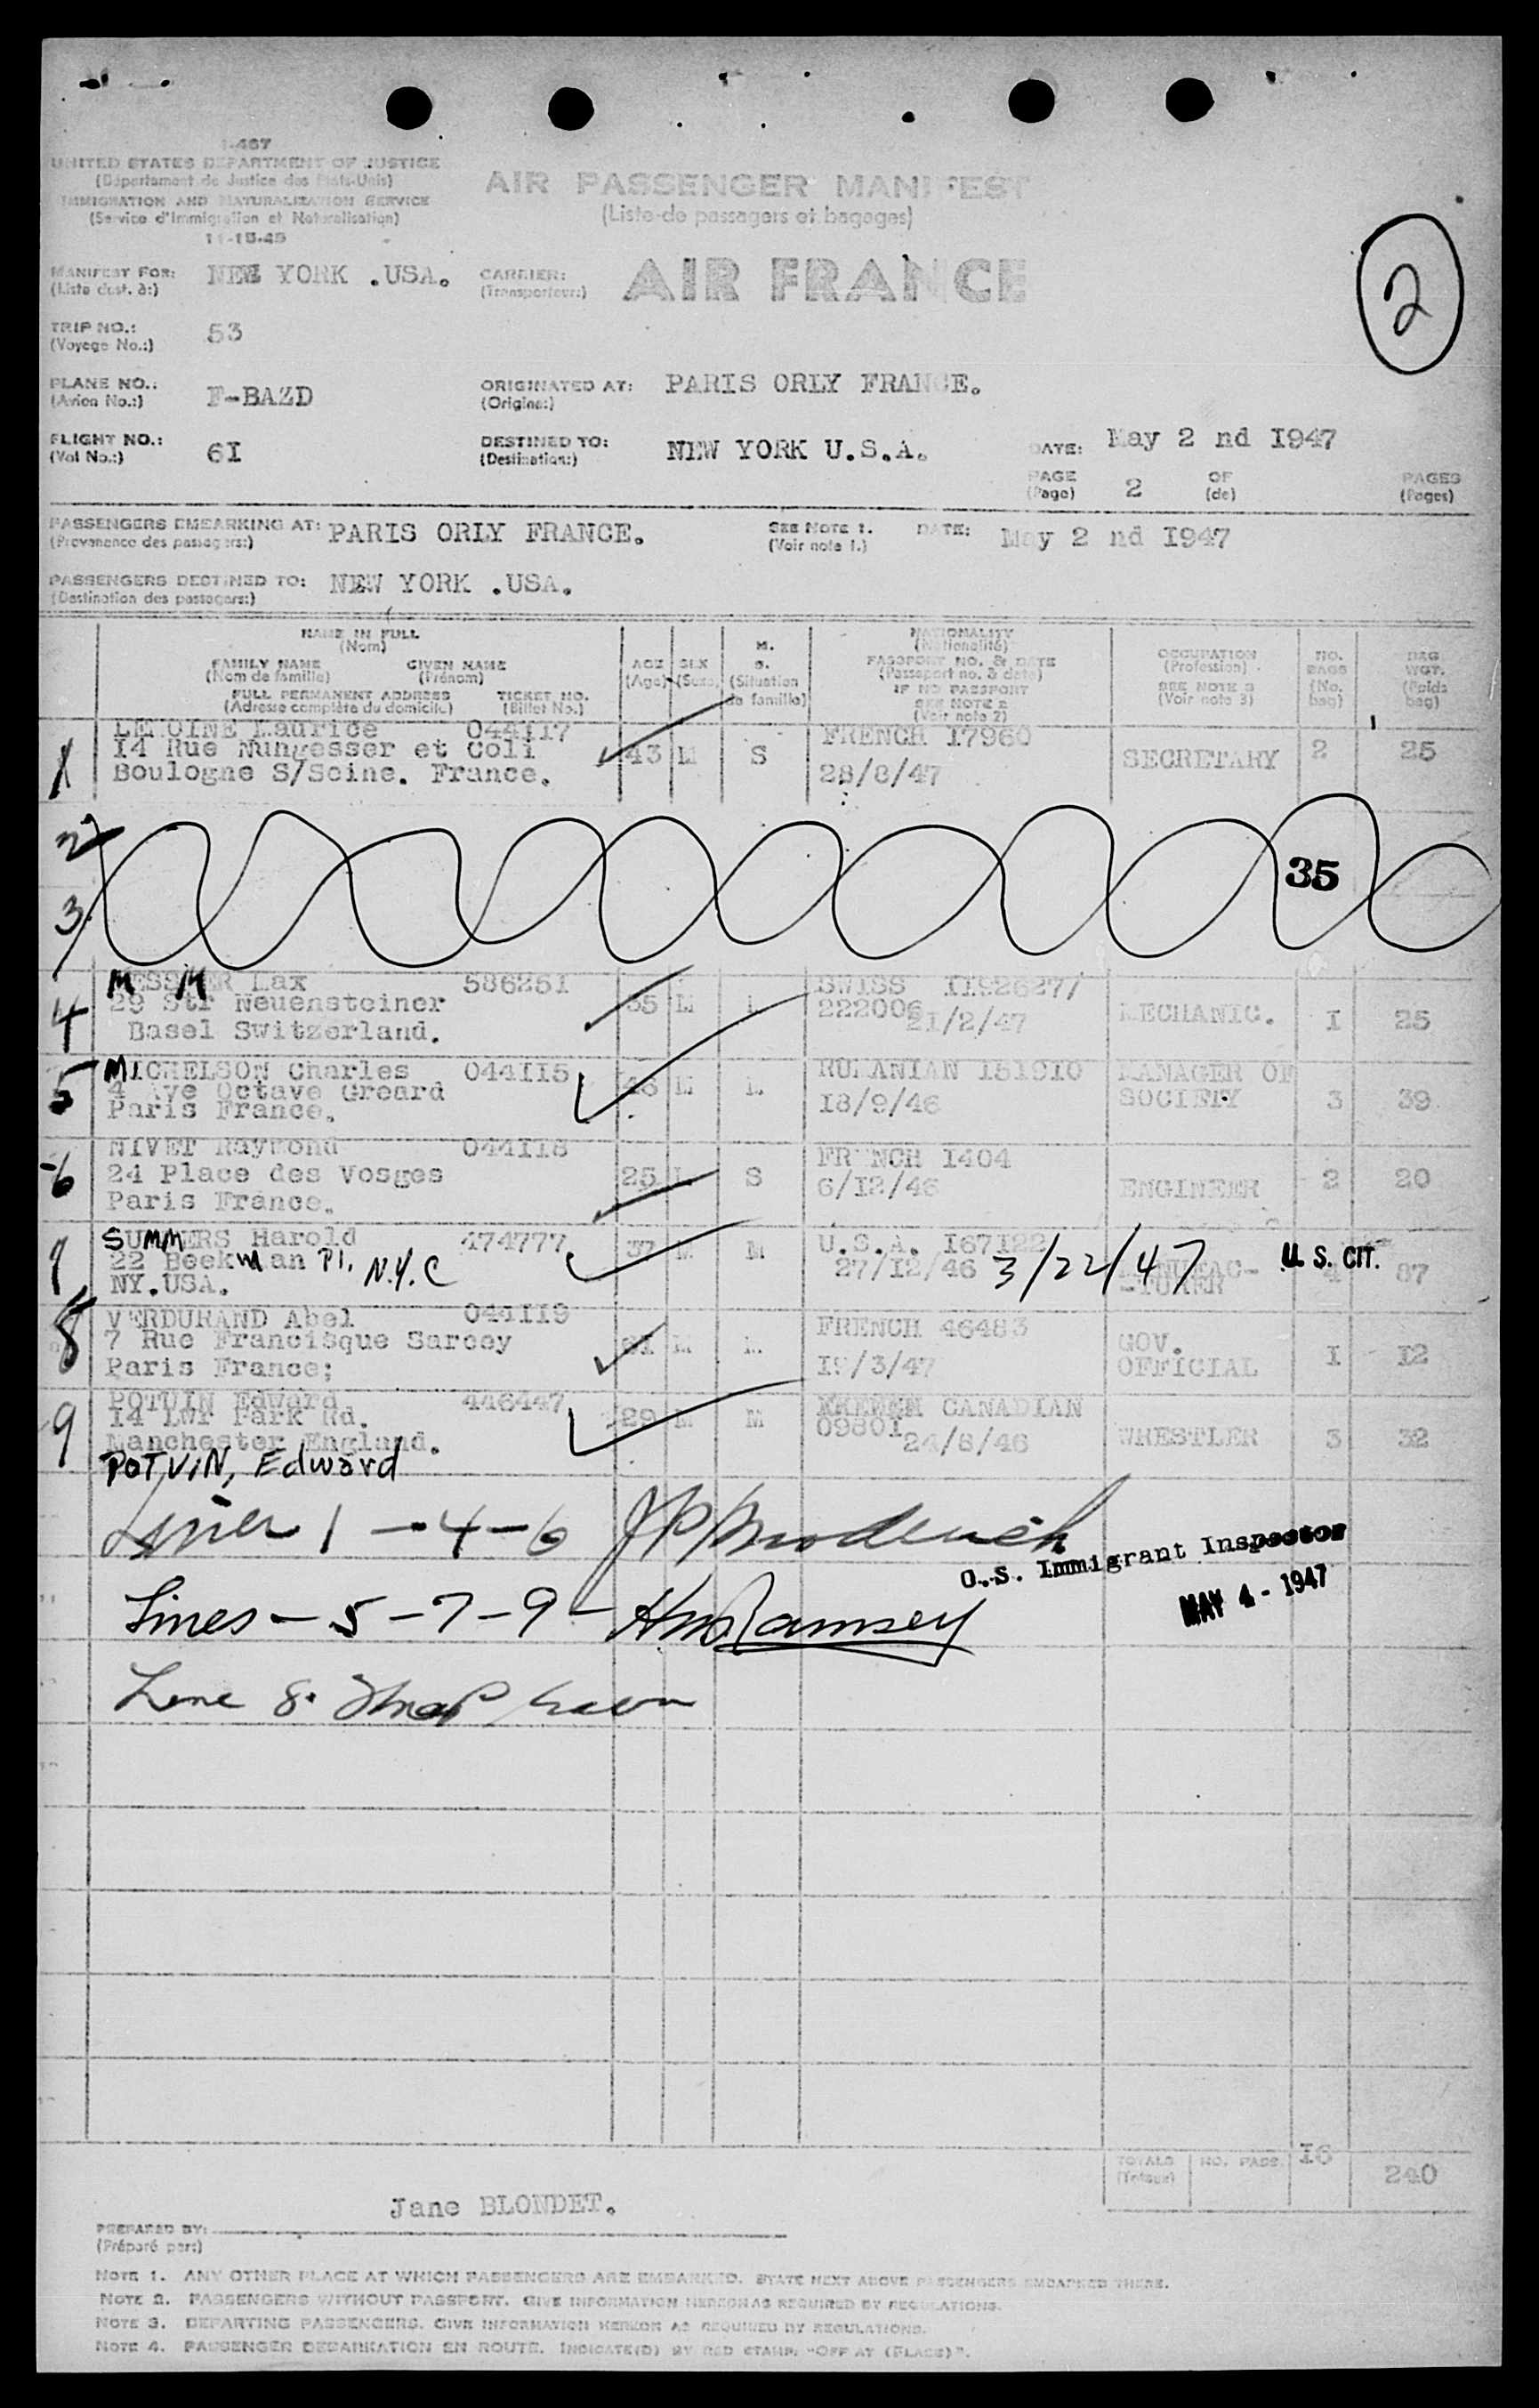 I-467
UNITED STATES DEPARTMENT OF JUSTICE
(Département de Justice des Etats-Unis)
IMMIGRATION AND NATURALIZATION SERVICE
(Service d'Immigration et Naturalisation)
11-15-45
AIR PASSENGER MANIFEST
(Liste de passagers et bagages)
2
MANIFEST FOR: NEW YORK .USA.
(Liste dest. à:)
CARRIER: AIR FRANCE
(Transporteur:)
TRIP NO.: 53
(Voyage No.:)
PLANE NO.: F-BAZD
(Avion No.:)
ORIGINATED AT: PARIS ORLY FRANCE.
(Origine:)
FLIGHT NO.: 6I
(Vol No.:)
DESTINED TO: NEW YORK U.S.A.
(Destination:)
DATE: May 2 nd I947
PAGE 2 OF PAGES
(Page) (de) (Pages)
PASSENGERS EMBARKING AT: PARIS ORLY FRANCE. SEE NOTE 1. DATE: May 2 nd I947
(Provenance des passagers:) (Voir note 1.)
PASSENGERS DESTINED TO: NEW YORK .USA.
(Destination des passagers:)
NAME IN FULL
(Nom)
FAMILY NAME GIVEN NAME
(Nom de famille) (Prénom)
FULL PERMANENT ADDRESS TICKET NO.
(Adresse complète du domicile) (Billet No.)
AGE
(Age)
SEX
(Sexe)
M.
S.
(Situation
de famille)
NATIONALITY
(Nationalité)
PASSPORT NO. & DATE
(Passeport no. & date)
IF NO PASSPORT
SEE NOTE 2
(Voir note 2)
OCCUPATION
(Profession)
SEE NOTE 3
(Voir note 3)
NO.
BAGS
(No.
bag)
BAG
WGT.
(Poids
bag)
1 LEMOINE Maurice 044II7 43 M S FRENCH I7960 SECRETARY 2 25
I4 Rue Nungesser et Coli
Boulogne S/Seine. France. 28/8/47
2
35
3
4 MESSMER Max 586251 35 M M SWISS II926277 MECHANIC. I 25
29 Str Neuensteiner 222006
Basel Switzerland. 21/2/47
5 MICHELSON Charles 044II5 46 M M RUMANIAN I5I9I0 MANAGER OF 3 39
4 Ave Octave Greard SOCIETY
Paris France. I8/9/46
6 NIVET Raymond 044II8 25 M S FRENCH I404 ENGINEER 2 20
24 Place des Vosges 6/I2/46
Paris France.
7 SUMMERS Harold 474777 37 M M U.S.A. I67I22 MANUFAC- 4 87
22 Beekman Pl, N.Y.C 27/I2/46 3/22/47 -TURER U. S. CIT.
NY.USA.
8 VERDURAND Abel 044II9 M M FRENCH 46483 GOV. I I2
7 Rue Francisque Sarcey OFFICIAL
Paris France; I9/3/47
9 POTUIN Edward 446447 29 M M CANADIAN WRESTLER 3 32
I4 Lwr Park Rd. 0980I
Manchester England. 24/8/46
POTVIN, Edward
Lines 1 - 4 - 6
U.S. Immigrant Inspector
MAY 4 - 1947
Lines - 5 - 7 - 9 - HM Ramsey
Line 8.
TOTALS NO. PASS. I6 240
(Totaux)
Jane BLONDET.
PREPARED BY:
(Préparé par:)
NOTE 1. ANY OTHER PLACE AT WHICH PASSENGERS ARE EMBARKED. STATE NEXT ABOVE PASSENGERS EMBARKED THERE.
NOTE 2. PASSENGERS WITHOUT PASSPORT. GIVE INFORMATION HEREON AS REQUIRED BY REGULATIONS.
NOTE 3. DEPARTING PASSENGERS. GIVE INFORMATION HEREON AS REQUIRED BY REGULATIONS.
NOTE 4. PASSENGER DEBARKATION EN ROUTE. INDICATE(D) BY RED STAMP: "OFF AT (PLACE)".